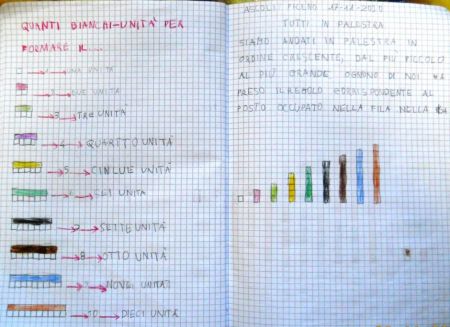 QUANTI BIANCHI-UNITÀ PER
FORMARE IL...
→1→UNA UNITÀ
→2→DUE UNITÀ
→3→TRE UNITÀ
→4→QUARTTO UNITÀ
→5→CINLUE UNITÀ
→6→SEI UNITÀ
→7→SETTE UNITÀ
→8→OTTO UNITÀ
→9→NOVE UNITÀ
→10→DIECI UNITÀ
ASCOLI PICENO 17-11-2020
TUTTI IN PALESTRA
SIAMO ANDATI IN PALESTRA IN
ORDINE CRESCENTE, DAL PIÙ PICCOLO
AL PIÙ GRANDE OGNUNO DI NOI HA
PRESO IL REGOLO CORRISPONDENTE AL
POSTO OCCUPATO NELLA FILA NELLA